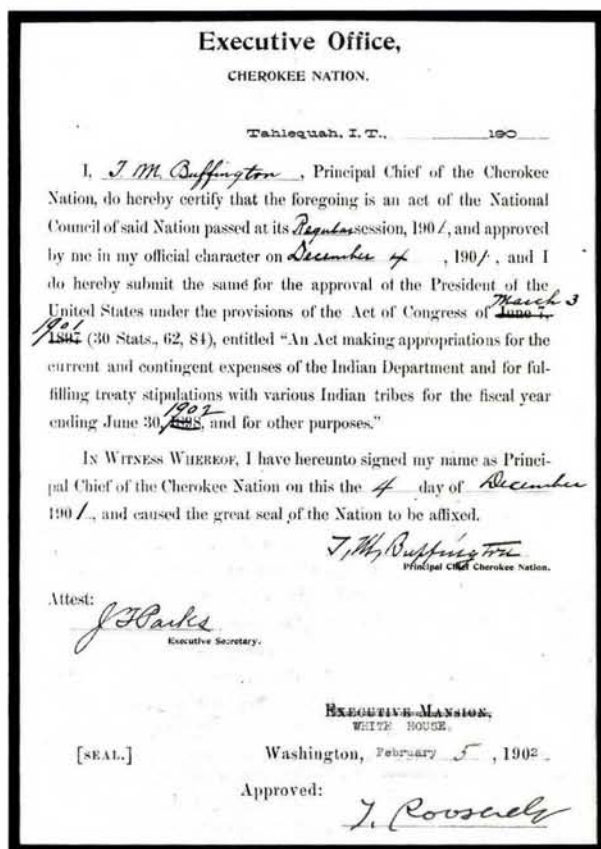 Executive Office,
CHEROKEE NATION.
Tahlequah, I. T., 190
I, T. M. Buffington , Principal Chief of the Cherokee
Nation, do hereby certify that the foregoing is an act of the National
Council of said Nation passed at its Regular session, 1901, and approved
by me in my official character on December 4 , 1901, and I
do hereby submit the same for the approval of the President of the
March 3
United States under the provisions of the Act of Congress of June 7,
1901
1897 (30 Stats., 62, 84), entitled “An Act making appropriations for the
current and contingent expenses of the Indian Department and for ful-
filling treaty stipulations with various Indian tribes for the fiscal year
1902
ending June 30, 1898, and for other purposes.”
IN WITNESS WHEREOF, I have hereunto signed my name as Princi-
pal Chief of the Cherokee Nation on this the 4 day of December
1901, and caused the great seal of the Nation to be affixed.
T. M. Buffington
Principal Chief Cherokee Nation.
Attest:
J F Parks
Executive Secretary.
EXECUTIVE MANSION,
WHITE HOUSE.
[SEAL.] Washington, February 5 , 1902.
Approved:
T. Roosevelt